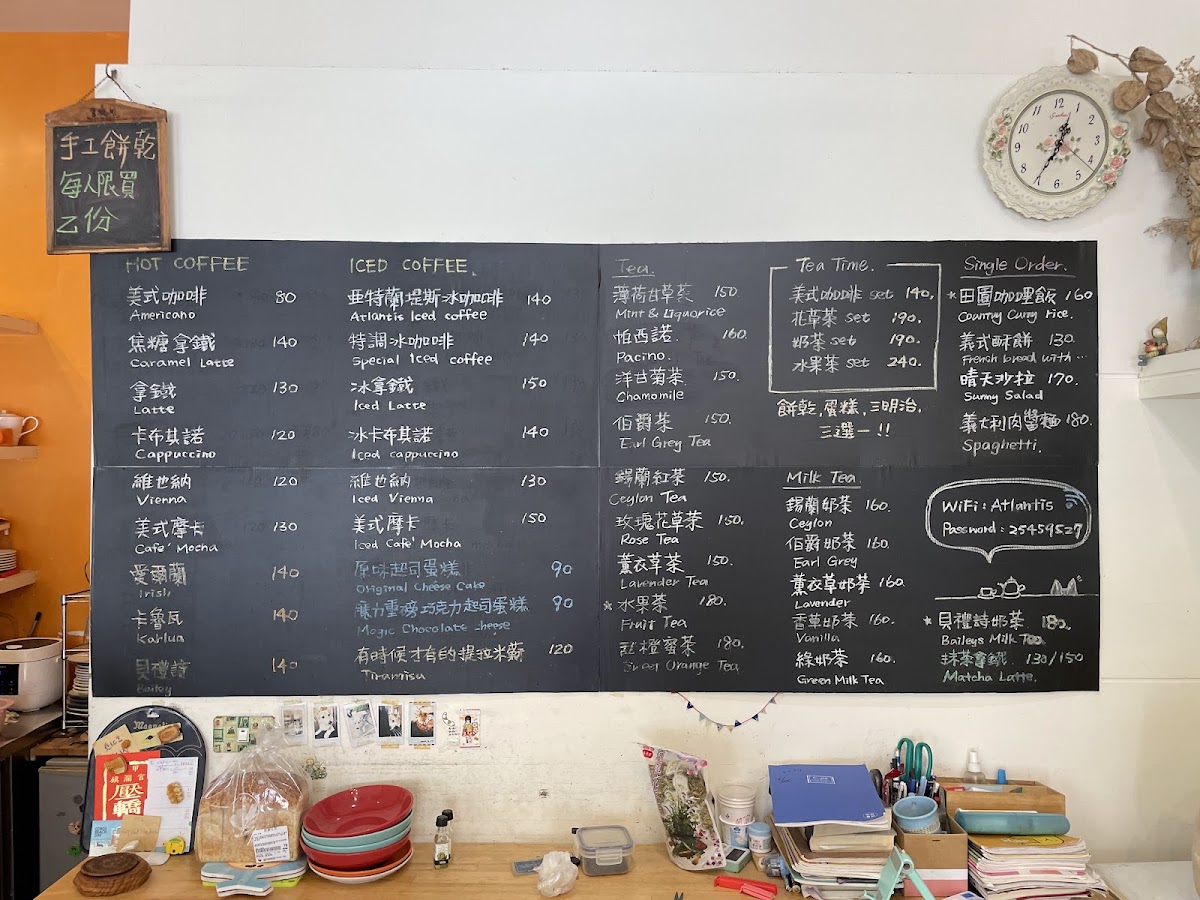 手工餅乾
每人限買
乙份
HOT COFFEE
美式咖啡 80
Americano
焦糖拿鐵 140
Caramel Latte
拿鐵 130
Latte
卡布其諾 120
Cappuccino
維也納 120
Vienna
美式摩卡 130
Cafe' Mocha
愛爾蘭 140
Irish
卡魯瓦 140
Kahlua
貝禮詩 140
Bailey
ICED COFFEE
亜特蘭堤斯冰咖啡 140
Atlantis Iced coffee
特調冰咖啡 140
Special Iced coffee
冰拿鐵 150
Iced Latte
冰卡布其諾 140
Iced cappuccino
維也納 130
Iced Vienna
美式摩卡 150
Iced Cafe' Mocha
原味起司蛋糕 90
Original Cheese Cake
魔力重磅巧克力起司蛋糕 90
Magic Chocolate cheese
有時候才有的提拉米蘇 120
Tiramisu
Tea.
薄荷甘草茶 150
Mint & Liquorice
帕西諾. 160.
Pacino.
洋甘菊茶 150.
Chamomile
伯爵茶 150.
Earl Grey Tea
錫蘭紅茶 150.
Ceylon Tea
玫瑰花草茶 150.
Rose Tea
薰衣草茶 150.
Lavender Tea
水果茶 180.
Fruit Tea
甜橙蜜茶 180.
Sweet Orange Tea
Tea Time.
美式咖啡 set 140.
花草茶 set 190.
奶茶 set 190.
水果茶 set 240.
餅乾.蛋糕.三明治.
三選一!!
Milk Tea
錫蘭奶茶 160.
Ceylon
伯爵奶茶 160.
Earl Grey
薰衣草奶茶 160.
Lavender
香草奶茶 160.
Vanilla
綠奶茶 160.
Green Milk Tea
Single Order.
*田園咖哩飯 160
Country Curry rice.
義式酥餅 130.
French bread with...
晴天沙拉 170.
Sunny Salad
義大利肉醬麵 180.
Spaghetti.
WiFi: Atlantis
Password: 25459527
*貝禮詩奶茶 180.
Baileys Milk Tea
抹茶拿鐵 130/150
Matcha Latte.
12
1
2
3
4
5
6
7
8
9
10
11
鎮瀾宮
壓轎